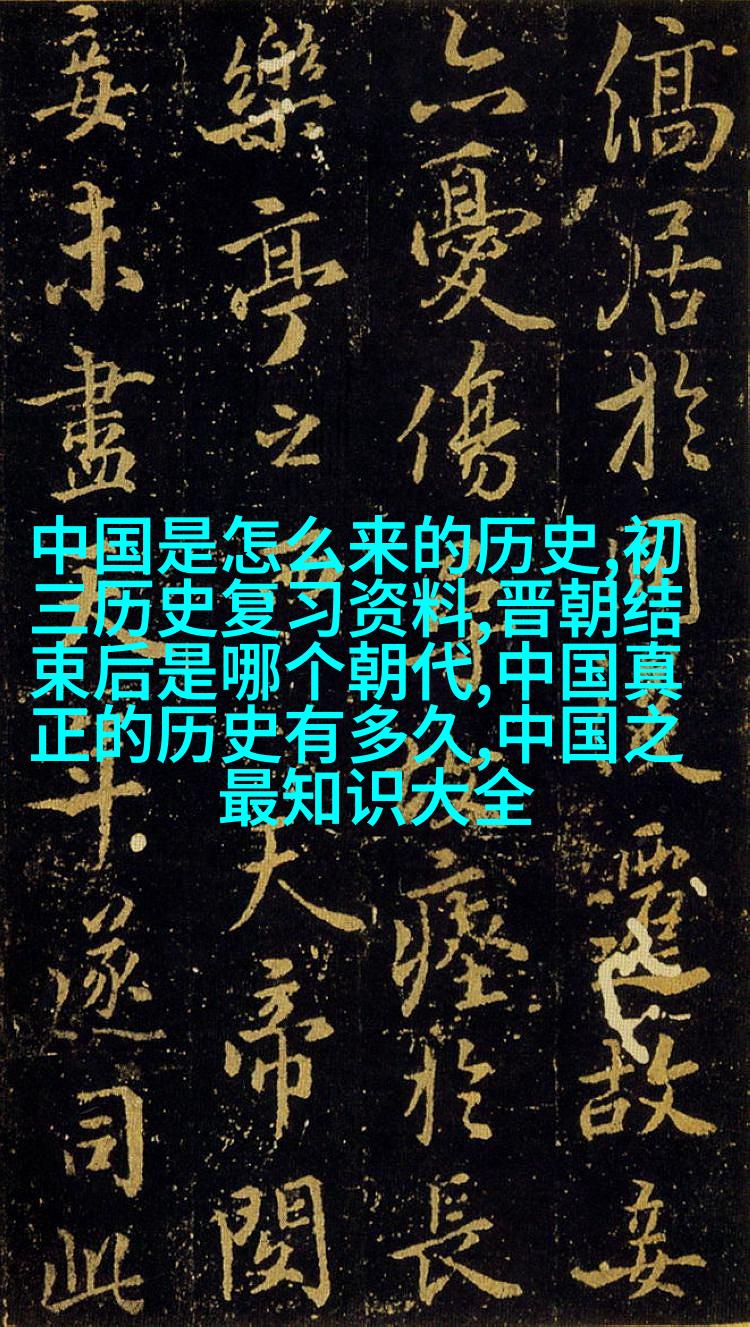 居於
遷故妾
亦憂傷
瘞於長
樂亭之
大帝閔
妾未盡
遂司此
中国是怎么来的历史,初
三历史复习资料,晋朝结
束后是哪个朝代,中国真
正的历史有多久,中国之
最知识大全